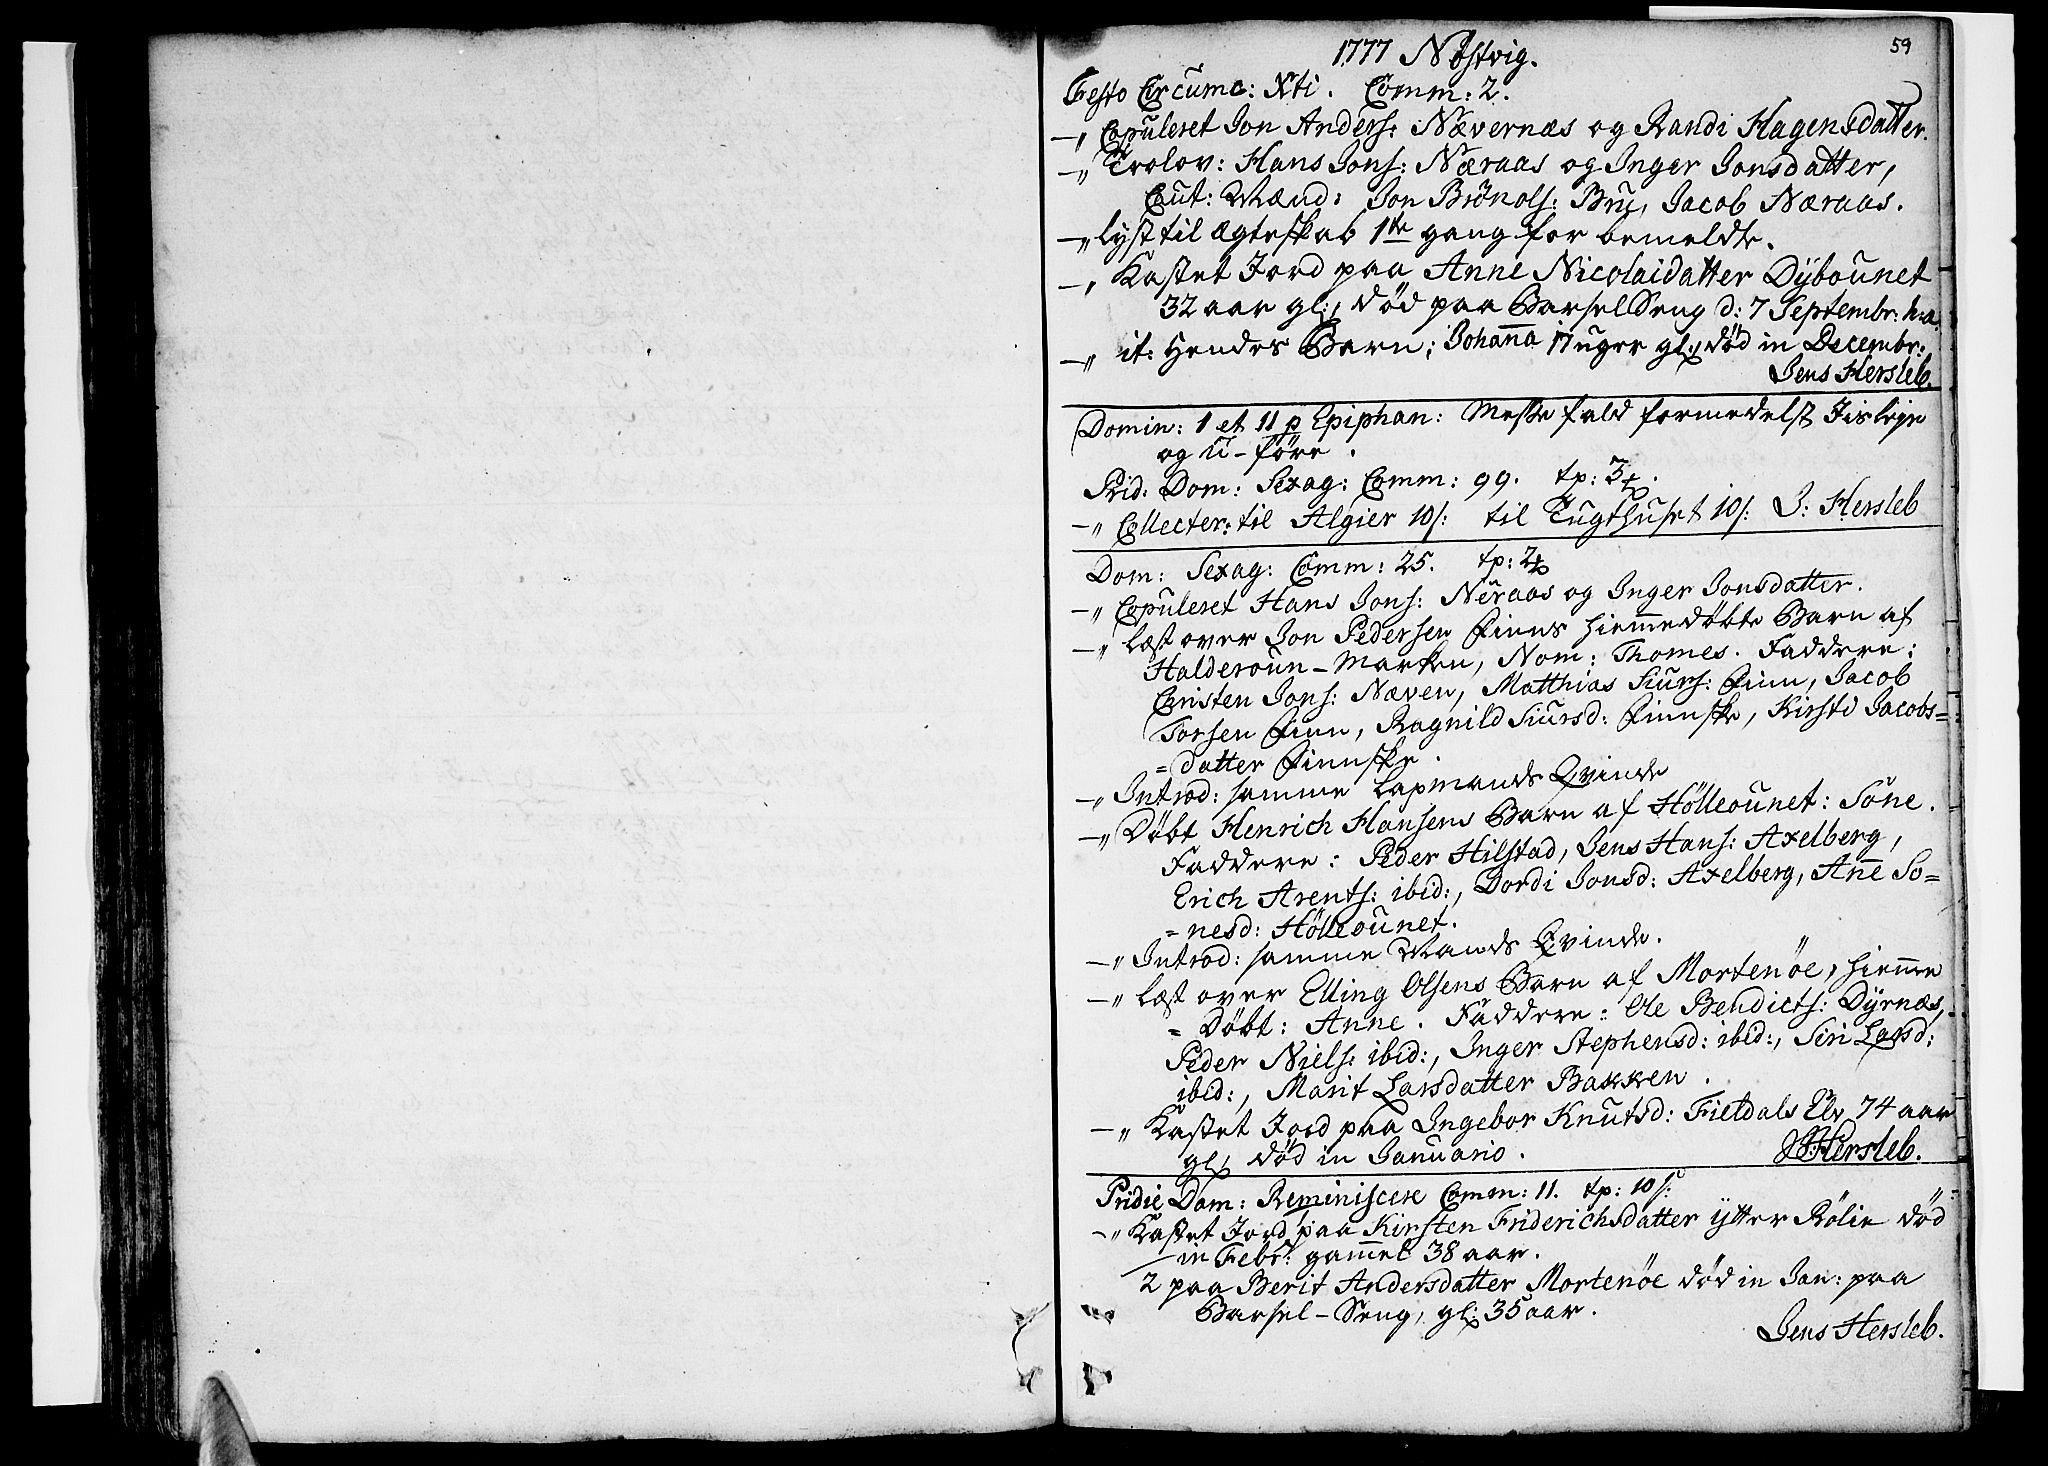 1777 Nöstvig.
59
Festo Circumc: Xti. Comm: 2.
—„ Copuleret Jon Anders: Nævernæs og Randi Hagensdatter.
—„ Trolov: Hans Jons: Næraas og Inger Jonsdatter,
Caut: Mænd: Jon Brönols: Bru, Jacob Næraas.
—„ lyst til Ægteskab 1te gang for bemeldte.
—„ Kastet Jord paa Anne Nicolaidatter Dÿbounet
32 aar gl:, död paa Barsel Seng d: 7 Septembr: h: a.
—„ it: Hendes Barn; Johanna 17 uger gl:, död in Decembr:
Jens Hersleb.
Domin: 1 et 11 p Epiphan: Messefald formedelst Iisleje
og U-före.
Prid: Dom: Sexag: Comm: 99. tp: 3
—„ Collecter: til Algier 10/: til Tugthuset 10/: J: Hersleb
Dom: Sexag: Comm: 25. tp: 2
—„ Copuleret Hans Jons: Neraas og Inger Jonsdatter.
—„ læst over Jon Pedersen Finns hiemmedöbte Barn af
Halderoun-Marken, Nom: Thomes. Faddere:
Christen Jons: Næven, Matthias Siurs: Finn, Jacob
Torsen Finn, Ragnild Siursd: Finnske, Kirsti Jacobs=
=datter Finnske.
—„ Introd: samme Lapmands Qvinde
—„ Döbt Henrich Hansens Barn af Hölleounet: Söne.
Faddere: Peder Hilstad, Jens Hans: Axelberg,
Erich Arents: ibid:, Dordi Jonsd: Axelberg, Anne So=
=nesd: Hölleounet.
—„ Introd: samme Mands Qvinde.
—„ læst over Elling Olsens Barn af Mortenöe, hiemme
=Döbt: Anne. Faddere: Ole Bendicts: Dÿrnæs,
Peder Niels: ibid:, Inger Stephensd: ibid:, Siri Larsd:
ibid:, Marit Larsdatter Bakken.
—„ Kastet Jord paa Ingebor Knutsd: Fieldals Elv 74 aar
gl: död in Januario.
JHersleb.
Pridie Dom: Reminiscere Comm: 11. tp: 10/:
—„ Kastet Jord paa Kirsten Friderichsdatter ÿtter Rölie död
in Febr: gammel 38 aar.
2 paa Berit Andersdatter Mortenöe död in Jan: paa
Barsel-Seng, gl: 35 aar.
Jens Hersleb.